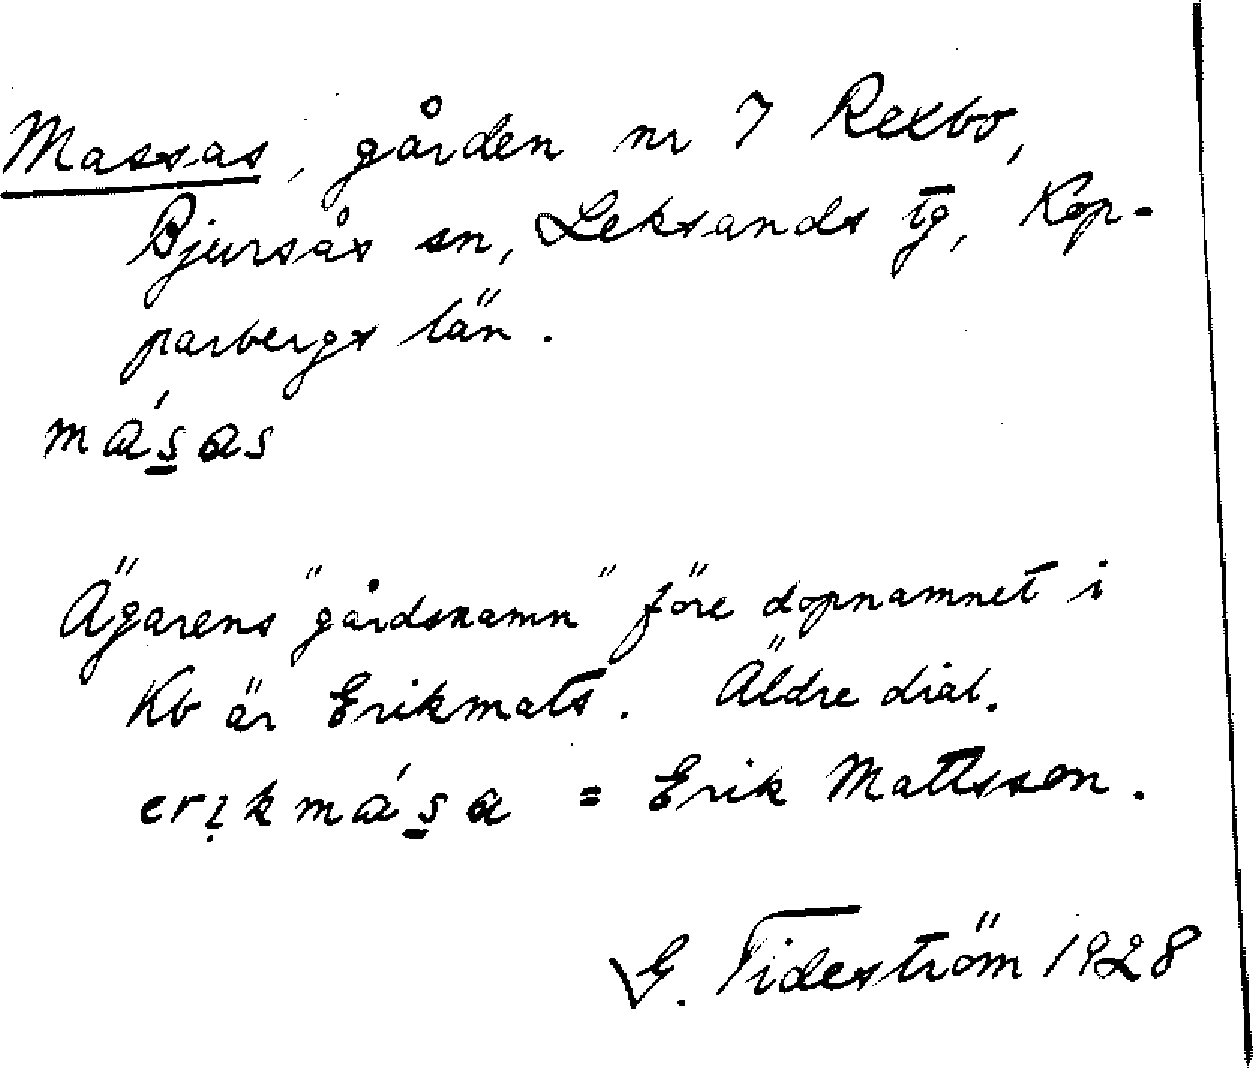 Massas, gården nr 7 Rexbo,
Bjursås sn, Leksands tg, Kop-
parbergs län.
másas
Ägarens "gårdsnamn" före dopnamnet i
Kb är Erikmats. Äldre dial.
erikmása = Erik Mattsson.
G. Tideström 1928